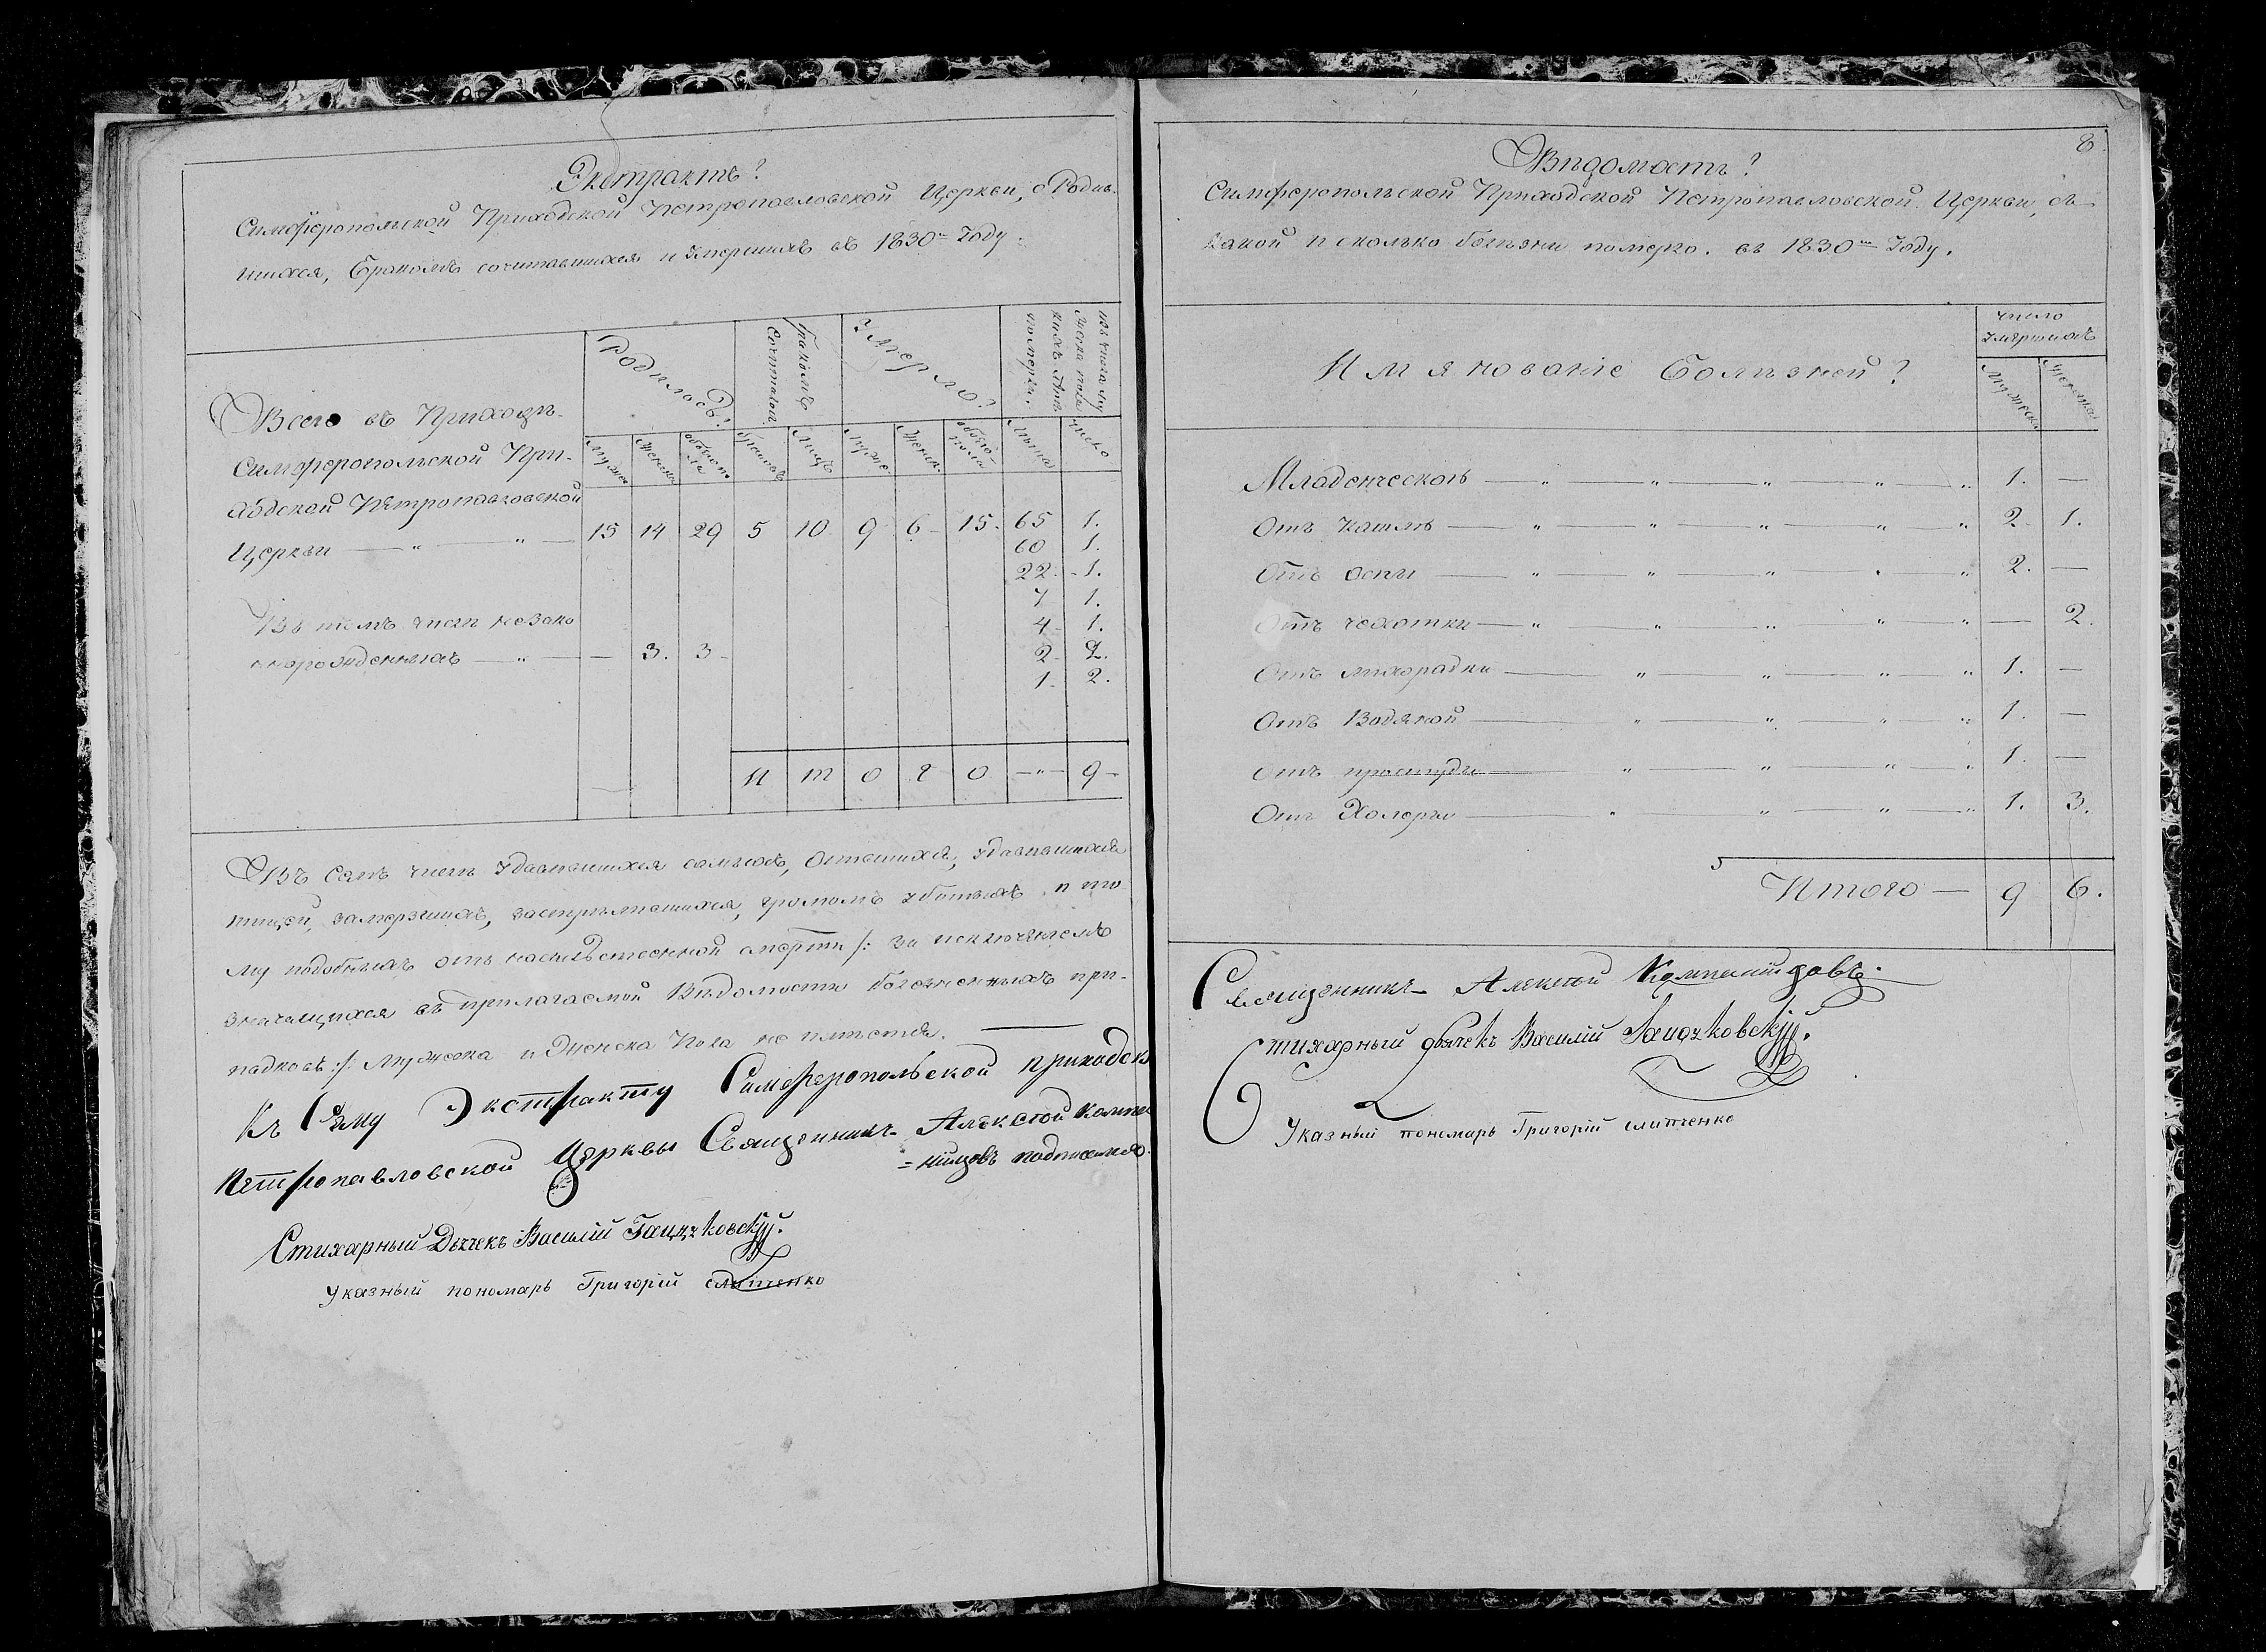 Экстрактъ?
Симферопольской Приходской Петропавловской Церкви, о Родив-
шихся, Бракомъ сочитавшихся и Умершихъ въ 1830м Году.
Родилось?
Бракомъ Сочитались
Умерло?
изъ числа му
жеска пола
какихъ лѣтъ
померли.
Мужеска
Женска
обоего по
ла
браковъ
Лицъ
Муже.
Женск.
обоего
пола
Лѣта
число
Всего въ Приходѣ-
Симферопольской При-
ходской Петропавловской
Церкви — „ — „ —
15 14 29 5 10 9 6 15. 65 1.
60 1.
22. 1.
7 1.
4 1.
2 2.
1. 2.
Въ томъ числѣ незако
ннорожденныхъ — „ — — 3. 3
И т о г о —„— 9
Въ семъ числѣ удавившихся самихъ, опившихся, удавившихся
пищей, замерзшихъ, застрѣлившихся, громомъ убитыхъ, и то
му подобныхъ отъ насильственной смерти /: за исключеніемъ
значащихся въ прилагаемой Вѣдомости болезненныхъ при-
падковъ :/ мужеска и Женска Пола не имѣется. —
Къ Сему Экстракту Симферопольской приходск
Петропавловской Церквы Священникъ Алексѣй
подписался.
Стихарный Дьячекъ Василій
Указный пономарь Григорій слипченко
8.
Вѣдомость?
Симферопольской Приходской Петропавловской Церкви, съ
какой и сколько болѣзни померло. въ 1830м Году.
Имянованіе Болѣзней?
число
умершихъ
Мужеска
Женска
Младенческой — „ — „ — „ — „ — „ 1. —
Отъ кашля — „ — „ — „ — „ — „ 2. 1.
Отъ оспы — „ — „ — „ — „ — „ 2. —
Отъ чехотки — „ — „ — „ — „ — „ — 2.
Отъ лихорадки — „ — „ — „ — „ 1. —
Отъ Водяной — „ — „ — „ — „ 1. —
Отъ простуды — „ — „ — „ — „ 1. —
Отъ Холеры — „ — „ — „ — „ 1. 3.
Итого — 9 6.
Священникъ Алексѣй
Стихарный дьячекъ Василій
Указный пономарь Григорій слипченко